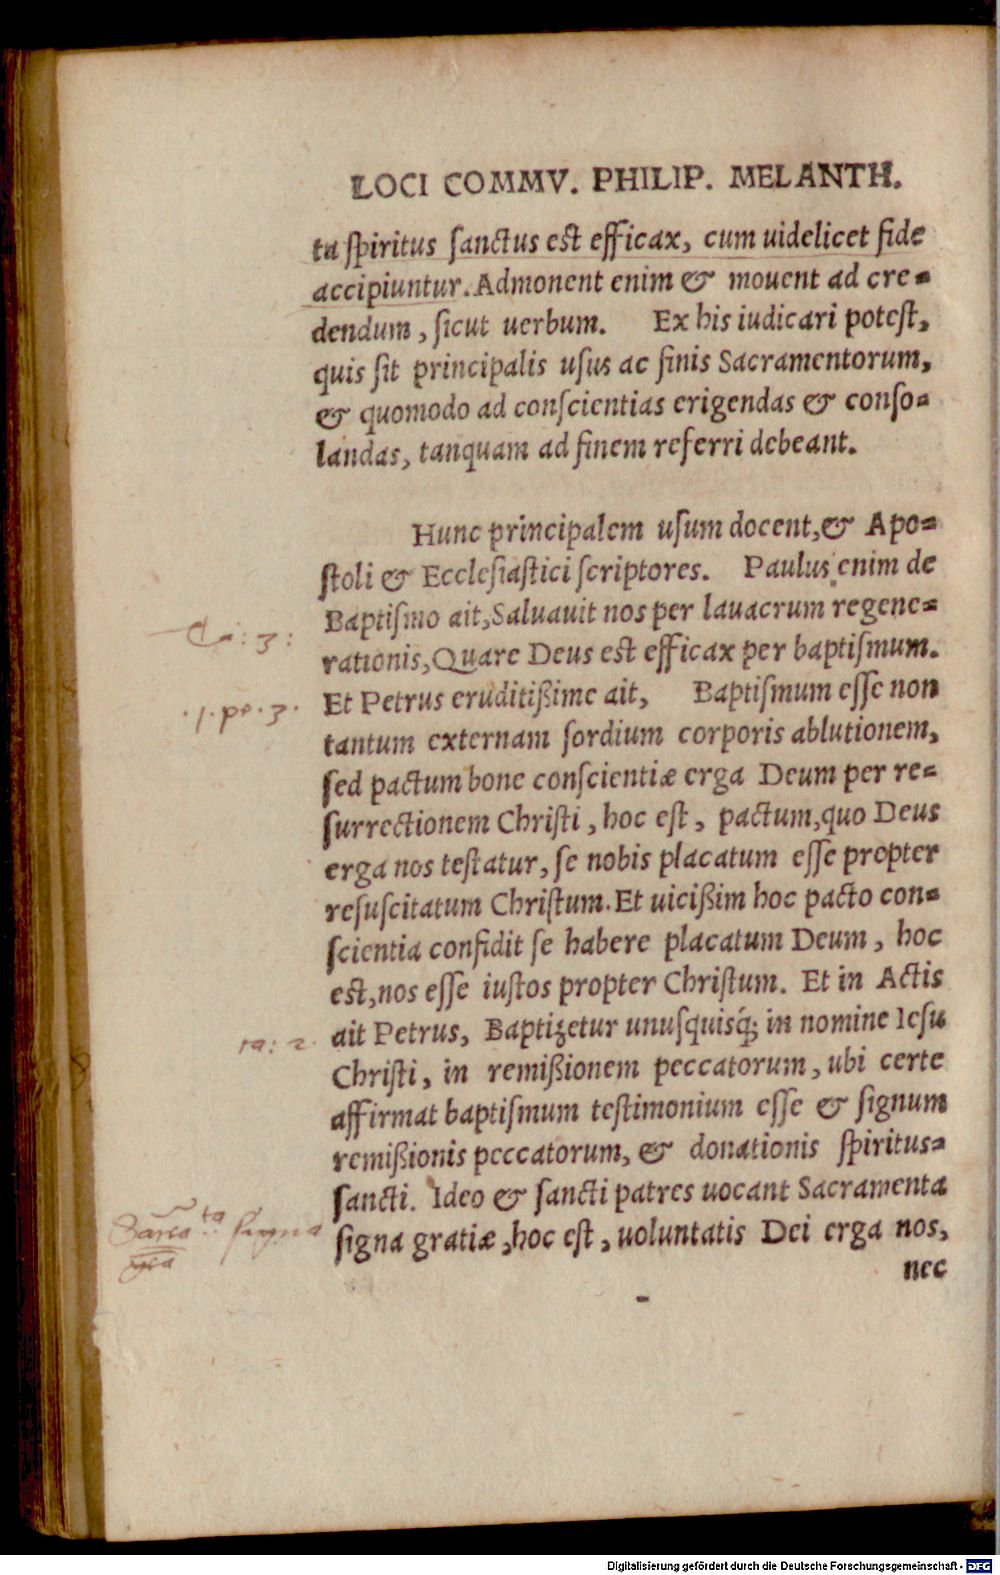 LOCI COMMV. PHILIP. MELANTH.
ta ſpiritus ſanctus est efficax, cum uidelicet fide
accipiuntur. Admonent enim & mouent ad cre=
dendum, ſicut uerbum. Ex his iudicari poteſt,
quis ſit principalis uſus ac finis Sacramentorum,
& quomodo ad conſcientias erigendas & conſo=
landas, tanquam ad finem referri debeant.
Hunc principalem uſum docent, & Apo=
ſtoli & Eccleſiaſtici ſcriptores. Paulus enim de
Baptiſmo ait, Saluauit nos per lauacrum regene=
rationis, Quare Deus est efficax per baptiſmum.
Et Petrus eruditißime ait, Baptiſmum eſſe non
tantum externam ſordium corporis ablutionem,
ſed pactum bone conſcientiæ erga Deum per re=
ſurrectionem Chriſti, hoc eſt, pactum, quo Deus
erga nos teſtatur, ſe nobis placatum eſſe propter
reſuſcitatum Chriſtum. Et uicißim hoc pacto con=
ſcientia confidit ſe habere placatum Deum, hoc
est, nos eſſe iuſtos propter Chriſtum. Et in Actis
ait Petrus, Baptizetur unuſquisq́; in nomine Ieſu
Chriſti, in remißionem peccatorum, ubi certe
affirmat baptiſmum teſtimonium eſſe & ſignum
remißionis peccatorum, & donationis ſpiritus=
ſancti. Ideo & ſancti patres uocant Sacramenta
ſigna gratiæ, hoc eſt, uoluntatis Dei erga nos,
nec
: 3 :
·1·pe·3·
: 2.
ſigna
Digitalisierung gefördert durch die Deutsche Forschungsgemeinschaft - DFG